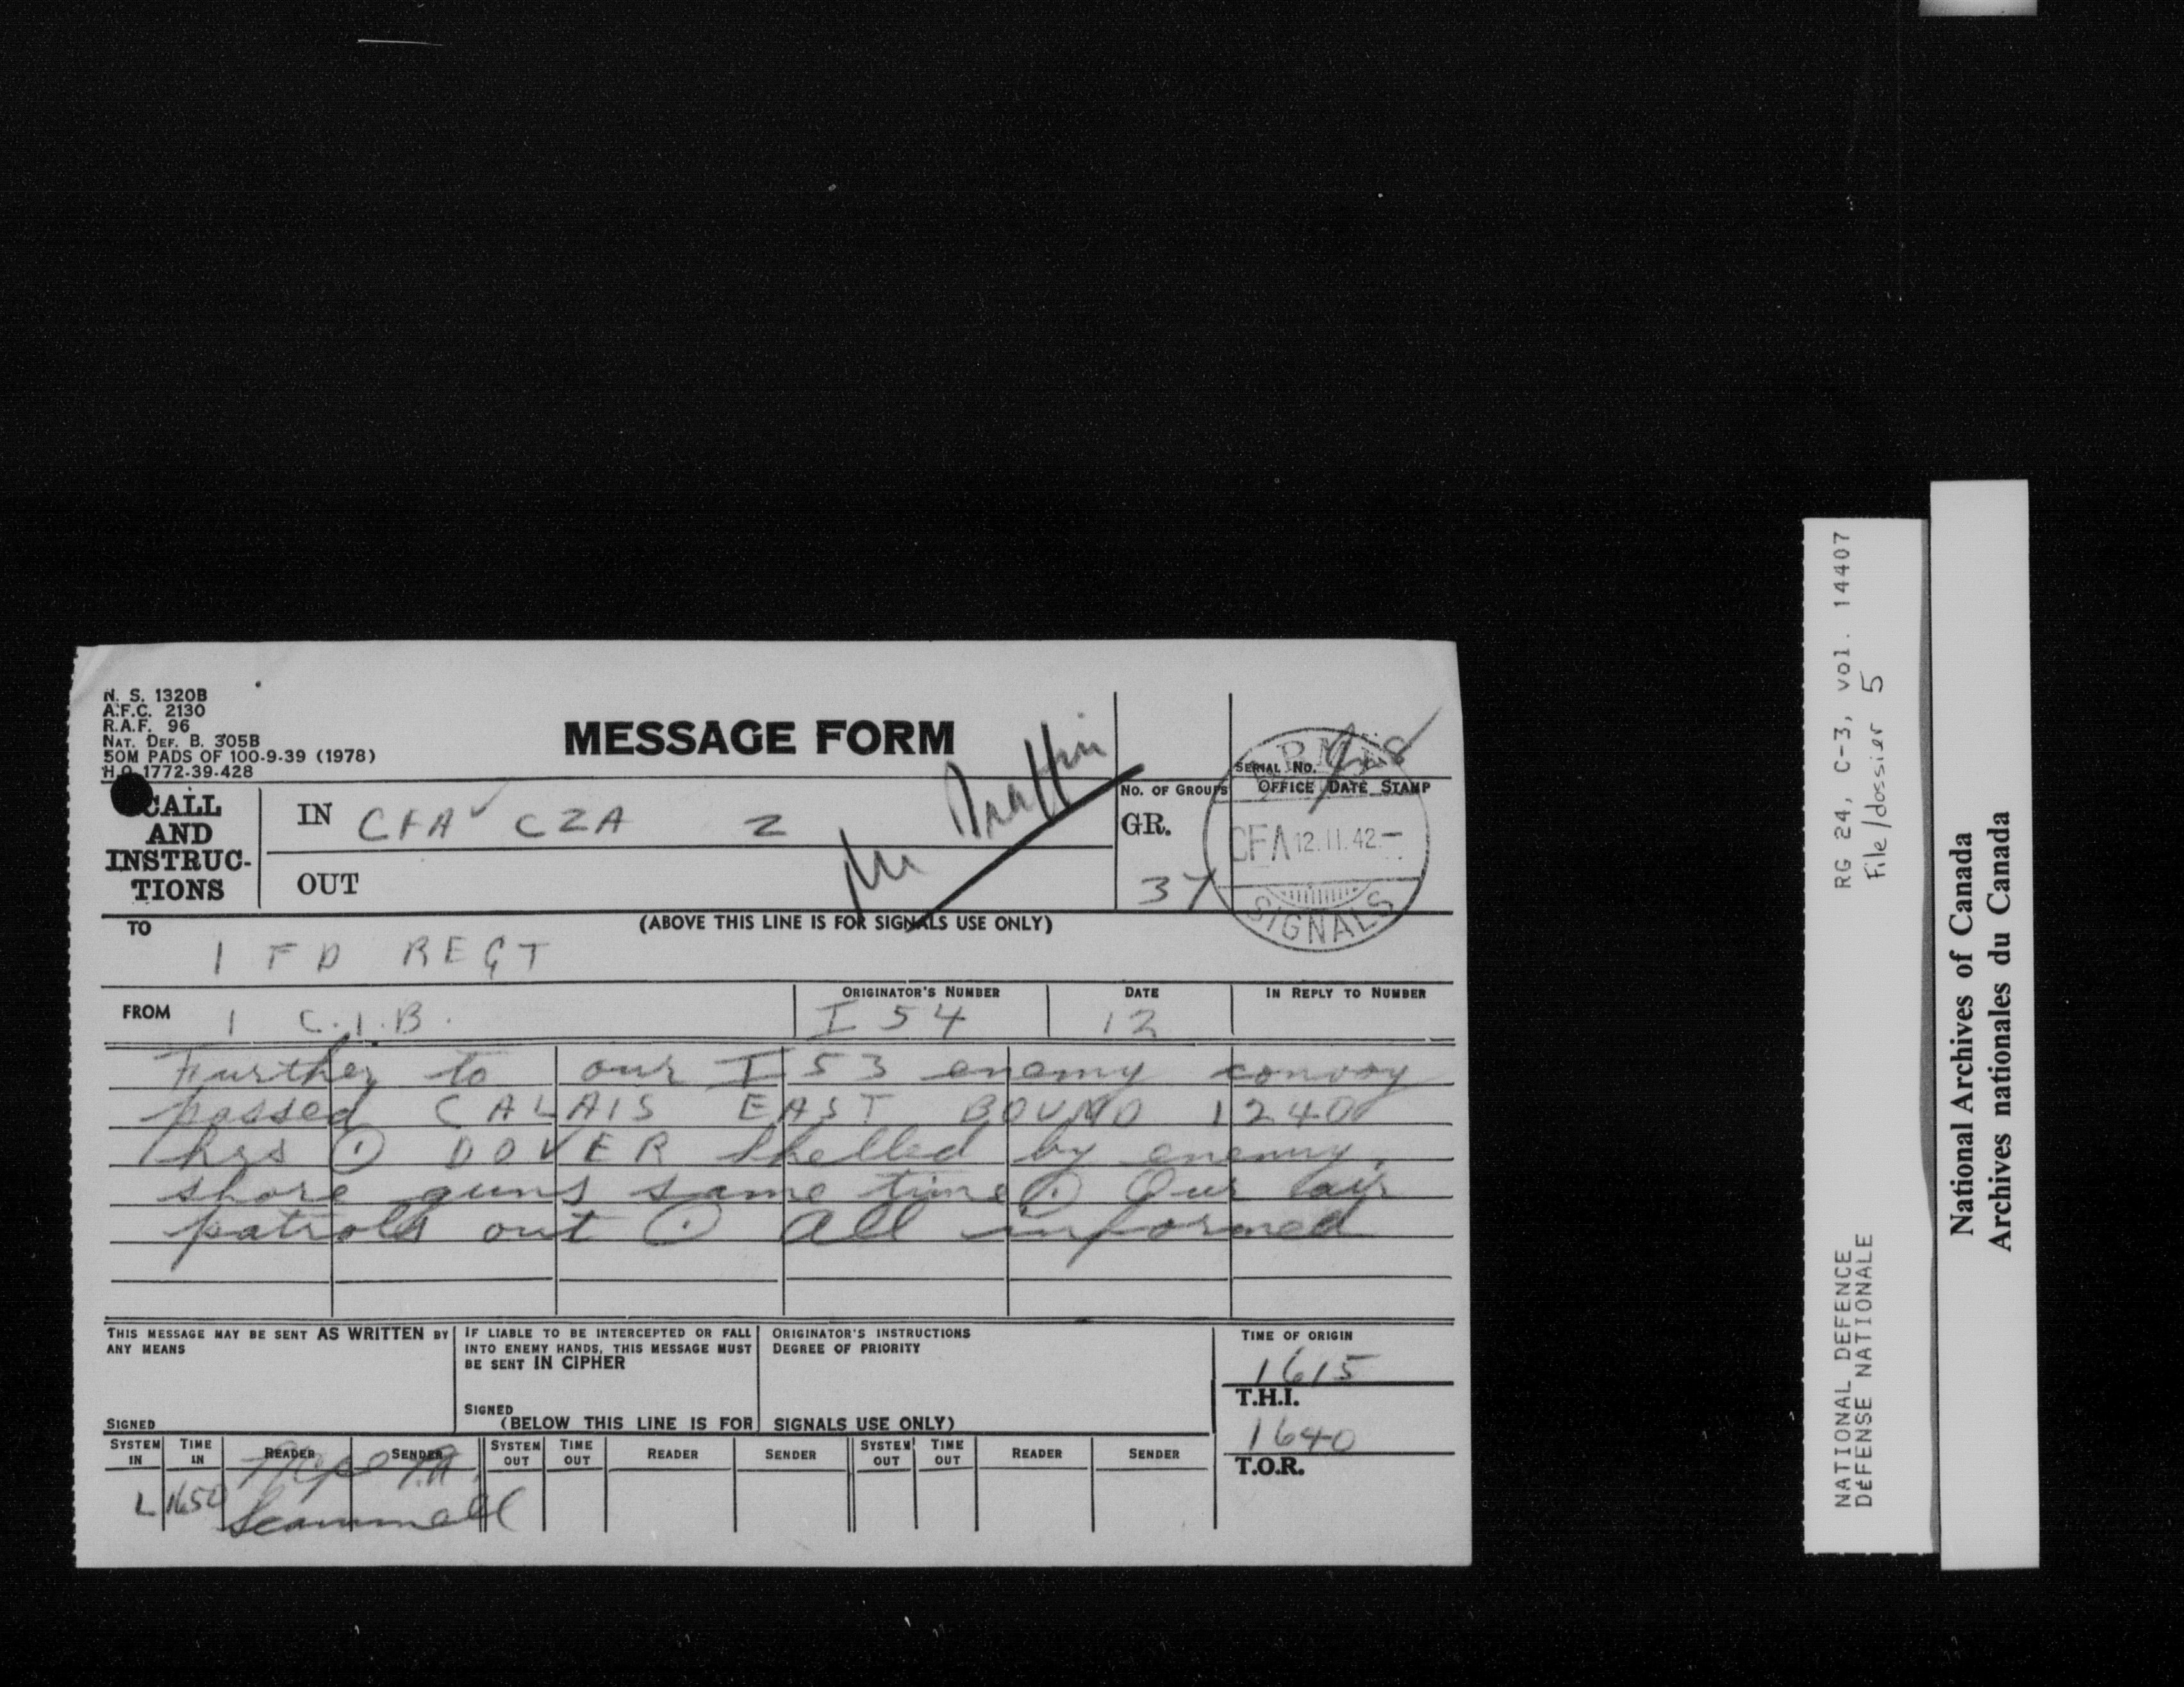 N. S. 1320B
A.F.C. 2130
R.A.F. 96
NAT. DEF. B. 305B
50M PADS OF 100-9-39 (1978)
H.Q. 1772-39-428
MESSAGE FORM
SERIAL No.
CALL AND INSTRUC-TIONS
IN CFA CZA Z
OUT
No. OF GROUPS
GR.
37
OFFICE DATE STAMP
CFA 12.11.42
SIGNALS
(ABOVE THIS LINE IS FOR SIGNALS USE ONLY)
TO
1 FD REGT
FROM 1 C.I.B.
ORIGINATOR'S NUMBER
I 54
DATE
12
IN REPLY TO NUMBER
Further to our I 53 enemy convoy
passed CALAIS EAST BOUND 1240
hrs ⊙ DOVER shelled by enemy
shore guns same time ⊙ Our air
patrols out ⊙ All informed
THIS MESSAGE MAY BE SENT AS WRITTEN BY
ANY MEANS
SIGNED
IF LIABLE TO BE INTERCEPTED OR FALL
INTO ENEMY HANDS, THIS MESSAGE MUST
BE SENT IN CIPHER
SIGNED
ORIGINATOR'S INSTRUCTIONS
DEGREE OF PRIORITY
TIME OF ORIGIN
1615
T.H.I.
1640
T.O.R.
(BELOW THIS LINE IS FOR SIGNALS USE ONLY)
SYSTEM IN TIME IN READER SENDER SYSTEM OUT TIME OUT READER SENDER SYSTEM OUT TIME OUT READER SENDER
L 1650
Scammell
RG 24, C-3, vol. 14407
File/dossier 5
NATIONAL DEFENCE
DÉFENSE NATIONALE
National Archives of Canada
Archives nationales du Canada